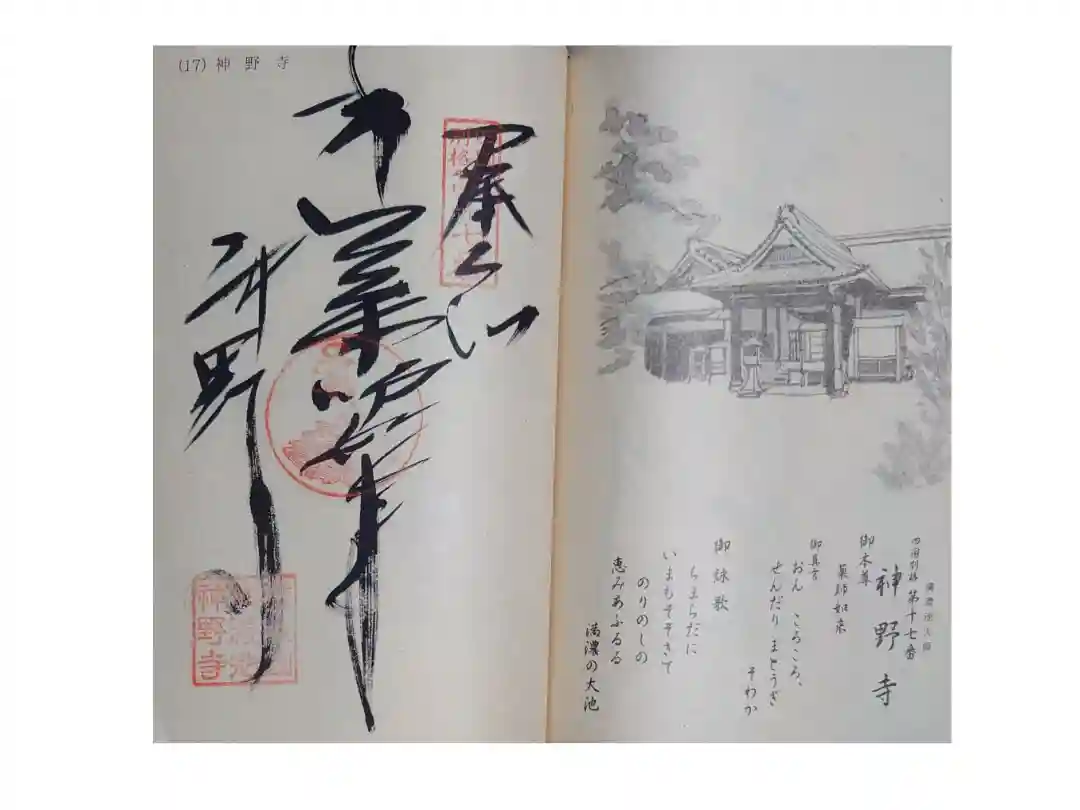 (17) 神野寺
奉納
神野寺
満濃池大師
四国別格 第十七番
神野寺
御本尊
薬師如来
御真言
おん ころころ、
せんだり まとうぎ
そわか
御詠歌
ちまちだに
いまもそそぎて
のりのしの
恵みあふるる
満濃の大池